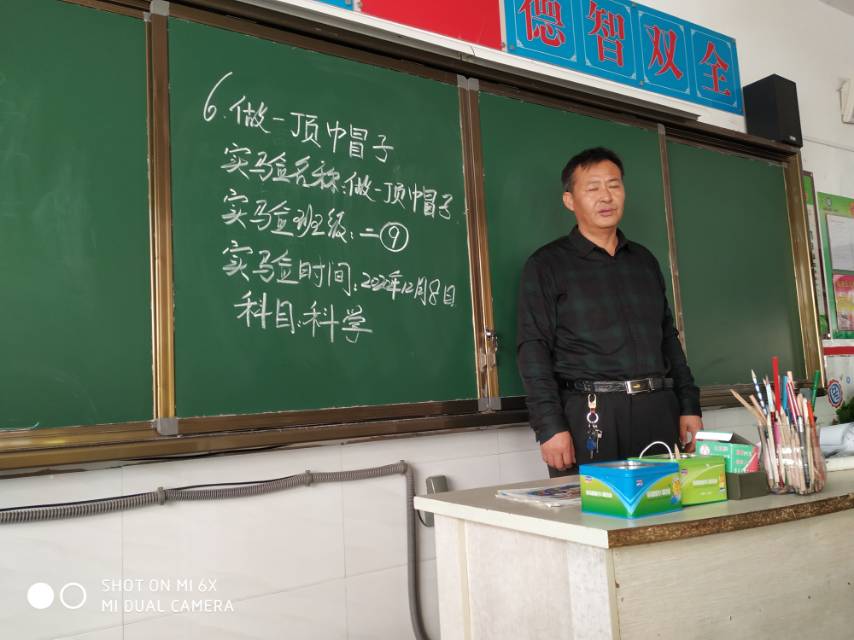 德智双全
6.做一顶巾冒子
实验名称:做一顶巾冒子
实验班级:二⑨
实验时间:2020年12月8日
科目:科学
SHOT ON MI 6X
MI DUAL CAMERA